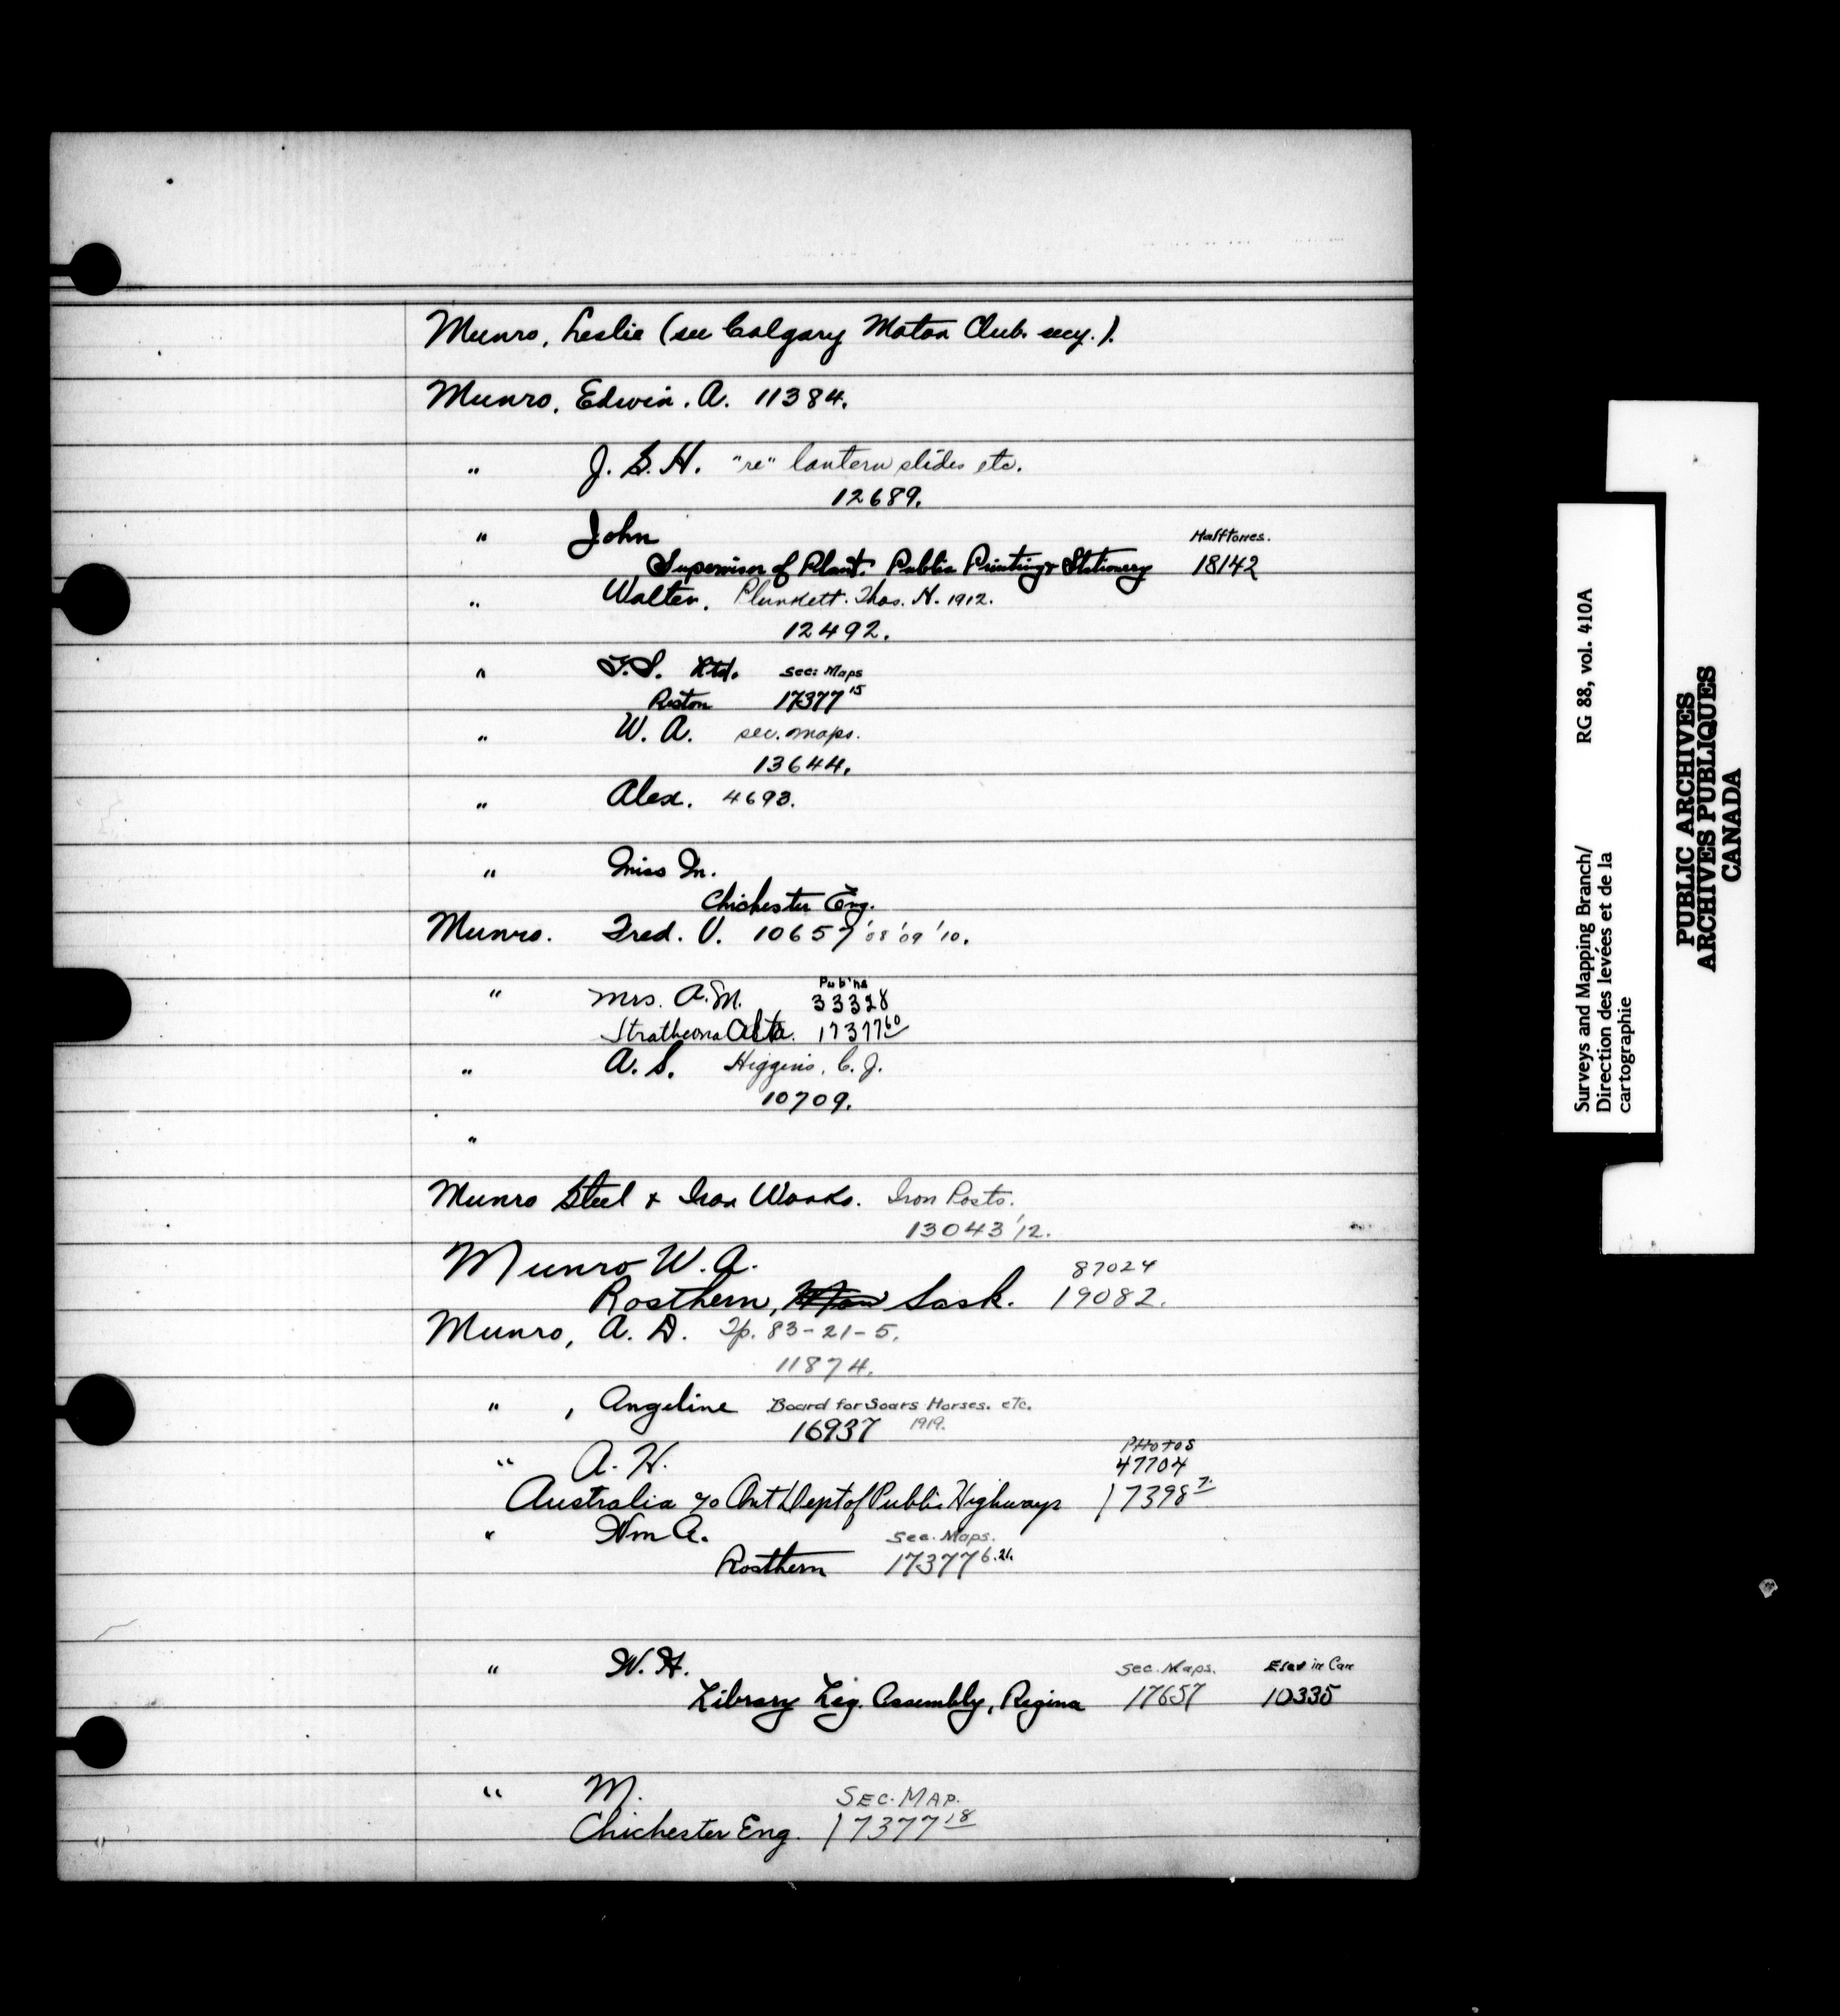 Munro, Leslie (see Calgary Motor Club. secy.).
Munro, Edwin. A. 11384.
" J. S. H. "re" lantern slides etc.
12689.
" John Halftones.
Supervisor of Plant. Public Printing & Stationery 18142
" Walter. Plunkett. Thos. H. 1912.
12492.
" T.S. Ltd. Sec: Maps
Reston 17377 15
" W. A. sec. maps.
13644.
" Alex. 4693.
" Miss M.
Chichester Eng.
Munro. Fred. V. 10657 '08 '09 '10.
" Mrs. A.M. Pub'ns 33328
Strathcona Alta. 17377 60
" A. S. Higgins, C. J.
10709.
"
Munro Steel & Iron Works. Iron Posts.
13043 '12.
Munro W. A. 87024
Rosthern, Man Sask. 19082.
Munro, A. D. Tp. 83-21-5.
11874.
" , Angeline Board for Soars Horses. etc.
16937 1919.
" A. H. PHOTOS 47704
Australia c/o Ont Dept of Public Highways 17398 7
" Wm A. Sec. Maps.
Rosthern 17377 6.21.
" W. H. Sec. Maps. Elev in Can
Library Leg. Assembly, Regina 17657 10335
" M. SEC. MAP.
Chichester Eng. 17377 18
Surveys and Mapping Branch/ RG 88, vol. 410A
Direction des levées et de la
cartographie
PUBLIC ARCHIVES
ARCHIVES PUBLIQUES
CANADA